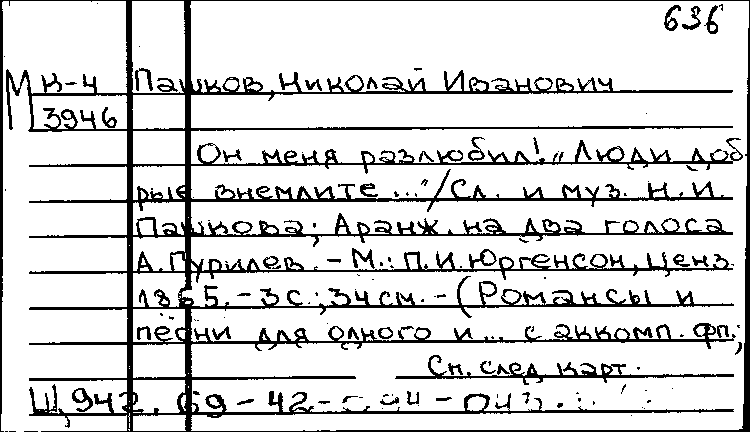 636
М К-4 Пашков, Николай Иванович
3946
Он меня разлюбил! „Люди доб-
рые внемлите..."/Сл. и муз. Н.И.
Пашкова; Аранж. на два голоса
А. Гурилев. - М.: П.И. Юргенсон, ценз.
1865. - 3 с.; 34 см. - (Романсы и
песни для одного и... с аккомп. фп.;
См. след. карт.
Ц942. 69-42-